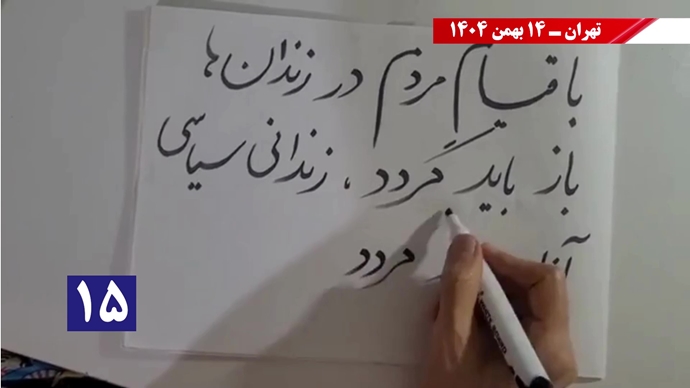 تهران ــ ۱۴ بهمن ۱۴۰۴
با قیام مردم در زندان ها
باز باید گردد، زندانی سیاسی
گردد
۱۵